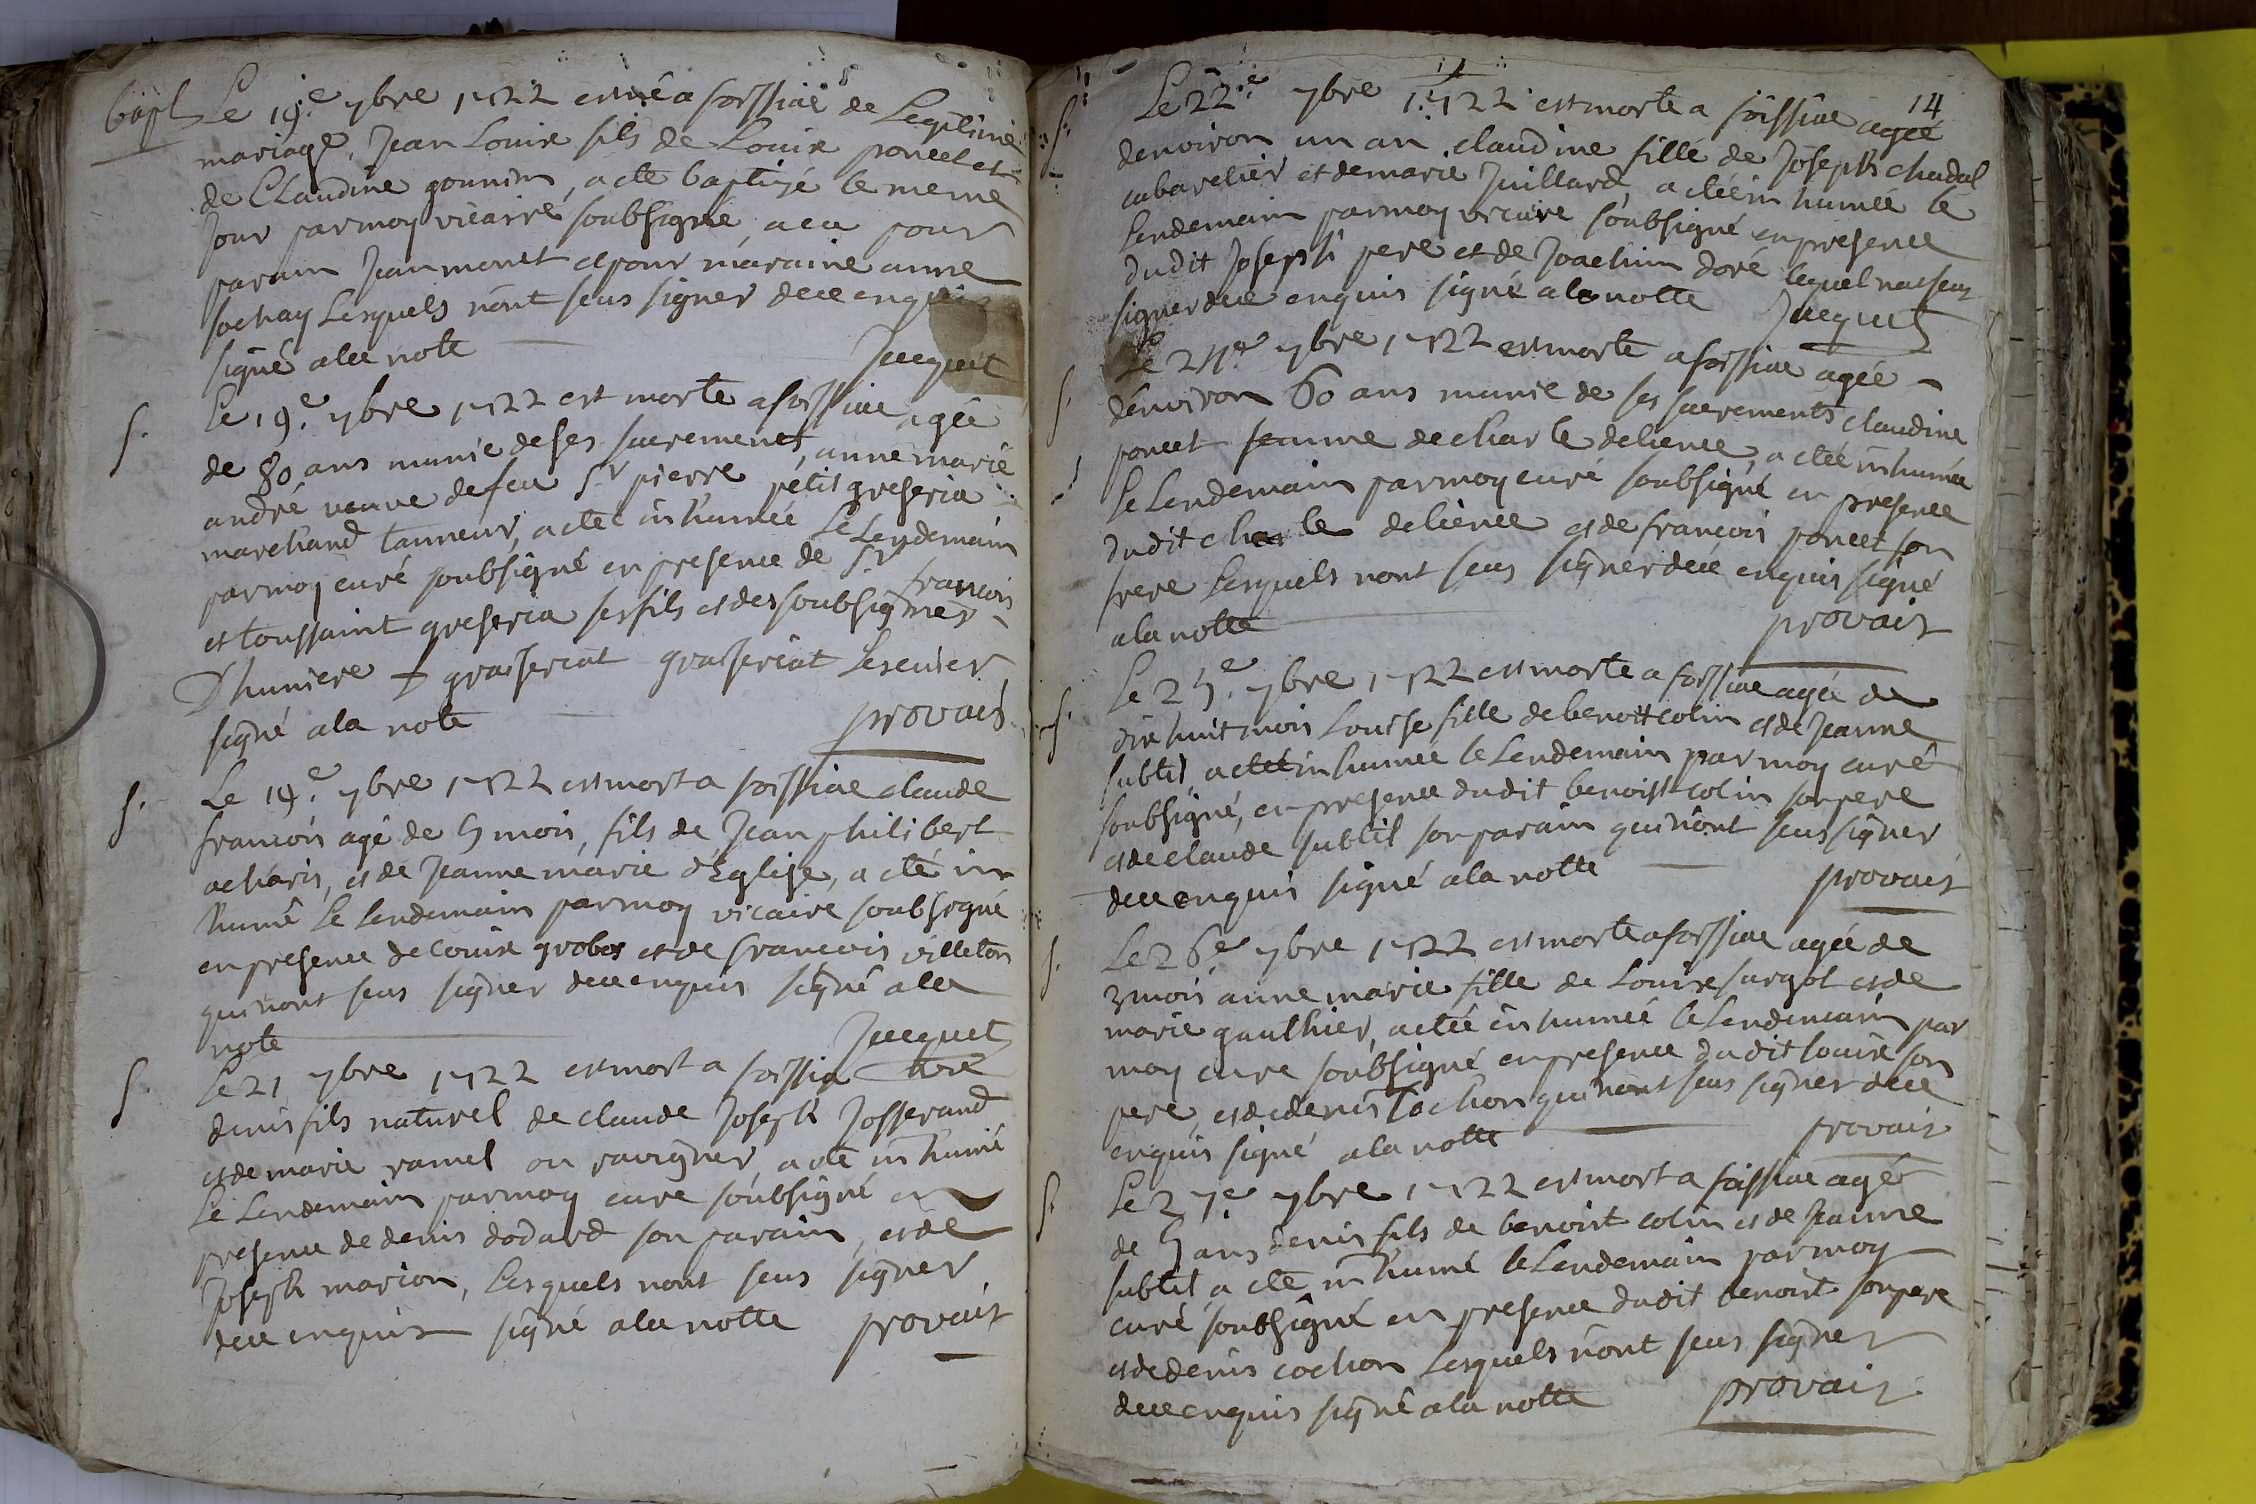 bapt Le 19.e 7bre 1722 est né a foissiae de Legitime
mariage, Jean Louis fils de Louis poncet et
de Claudine gounin, a eté baptizé le meme
Jour par moy vicaire soubsigné, a eu pour
parain Jean monet et pour maraine anne
sochay Lesquels n'ont sceus signer de ce enquis
signé a la note Jacquet
S. Le 19.e 7bre 1722 est morte a foissiae agée
de 80 ans munie de ses sacrements, anne marie
andré veuve de feu Sr pierre petit greseria
marchand tanneur, a eté inhumée Le Lendemain
par moy curé soubsigné en presence de Sr francois
et toussaint greseria ses fils et des soubsignés
D'humiere graiseriat graiseriat Lesenier
signé a la note provais
S. Le 19.e 7bre 1722 est mort a foissiae claude
francois agé de 5 mois, fils de Jean philibert
acharis, et de Jeanne marie d'Eglise, a eté in
humé Le Lendemain par moy vicaire soubsigné
en presence de Louis grobos et de francois villeton
qui n'ont sceus signer de ce enquis signé a la
note Jacquet
S. Le 21 7bre 1722 est mort a foissia
denis fils naturel de claude Joseph Josserand
et de marie ramel ou ravigner, a eté inhumé
Le Lendemain par moy curé soubsigné en
presence de denis dodard son parain, et de
Joseph marion, Lesquels n'ont sceus signer
de ce enquis signé a la notte provais
14
S. Le 22.e 7bre 1722 est morte a foissiae agée
denviron un an claudine fille de Joseph chadal
cabaretier et de marie Juillard, a eté inhumée le
Lendemain par moy vicaire soubsigné en presence
dudit Joseph pere et de Joachim doré lequel na sceu
signer de ce enquis signé a la notte Jacquet
S. Le 24.e 7bre 1722 est morte a foissiae agée
denviron 60 ans munie de ses sacrements claudine
poncet femme de charle delience, a eté inhumée
le Lendemain par moy curé soubsigné en presence
dudit charle delience et de francois poncet son
frere Lesquels n'ont sceus signer de ce enquis signé
a la notte provais
S. Le 25.e 7bre 1722 est morte a foissiae agée de
dix huit mois Louise fille de benoit colin et de Jeanne
subtil, a eté inhumée le Lendemain par moy curé
soubsigné, en presence dudit benoist colin son pere
et de claude subtil son parain qui n'ont sceus signer
de ce enquis signé a la notte provais
S. Le 26.e 7bre 1722 est morte a foissiae agée de
3 mois anne marie fille de Louis surgot et de
marie gauthier, a eté inhumée le Lendemain par
moy curé soubsigné en presence dudit Louis son
pere, et de denis Cochon qui n'ont sceus signer de ce
enquis signé a la notte provais
S. Le 27.e 7bre 1722 est mort a foissiae agé
de 5 ans denis fils de benoist colin et de Jeanne
subtil a eté inhumé le Lendemain par moy
curé soubsigné en presence dudit benoist son pere
et de denis cochon Lesquels n'ont sceus signer
de ce enquis signé a la notte provais